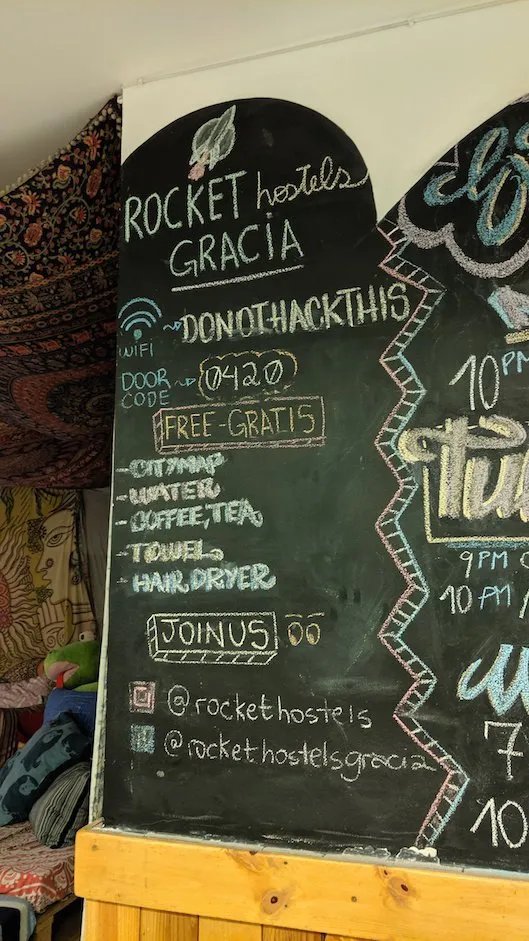 ROCKET hostels
GRACIA
WIFI DONOTHACKTHIS
DOOR CODE 0420
FREE-GRATIS
-CITYMAP
-WATER
-COFFEE, TEA
-TOWEL
-HAIR DRYER
JOIN US
@rockethostels
@rockethostelsgracia
10 PM
9 PM
10 PM
7
10